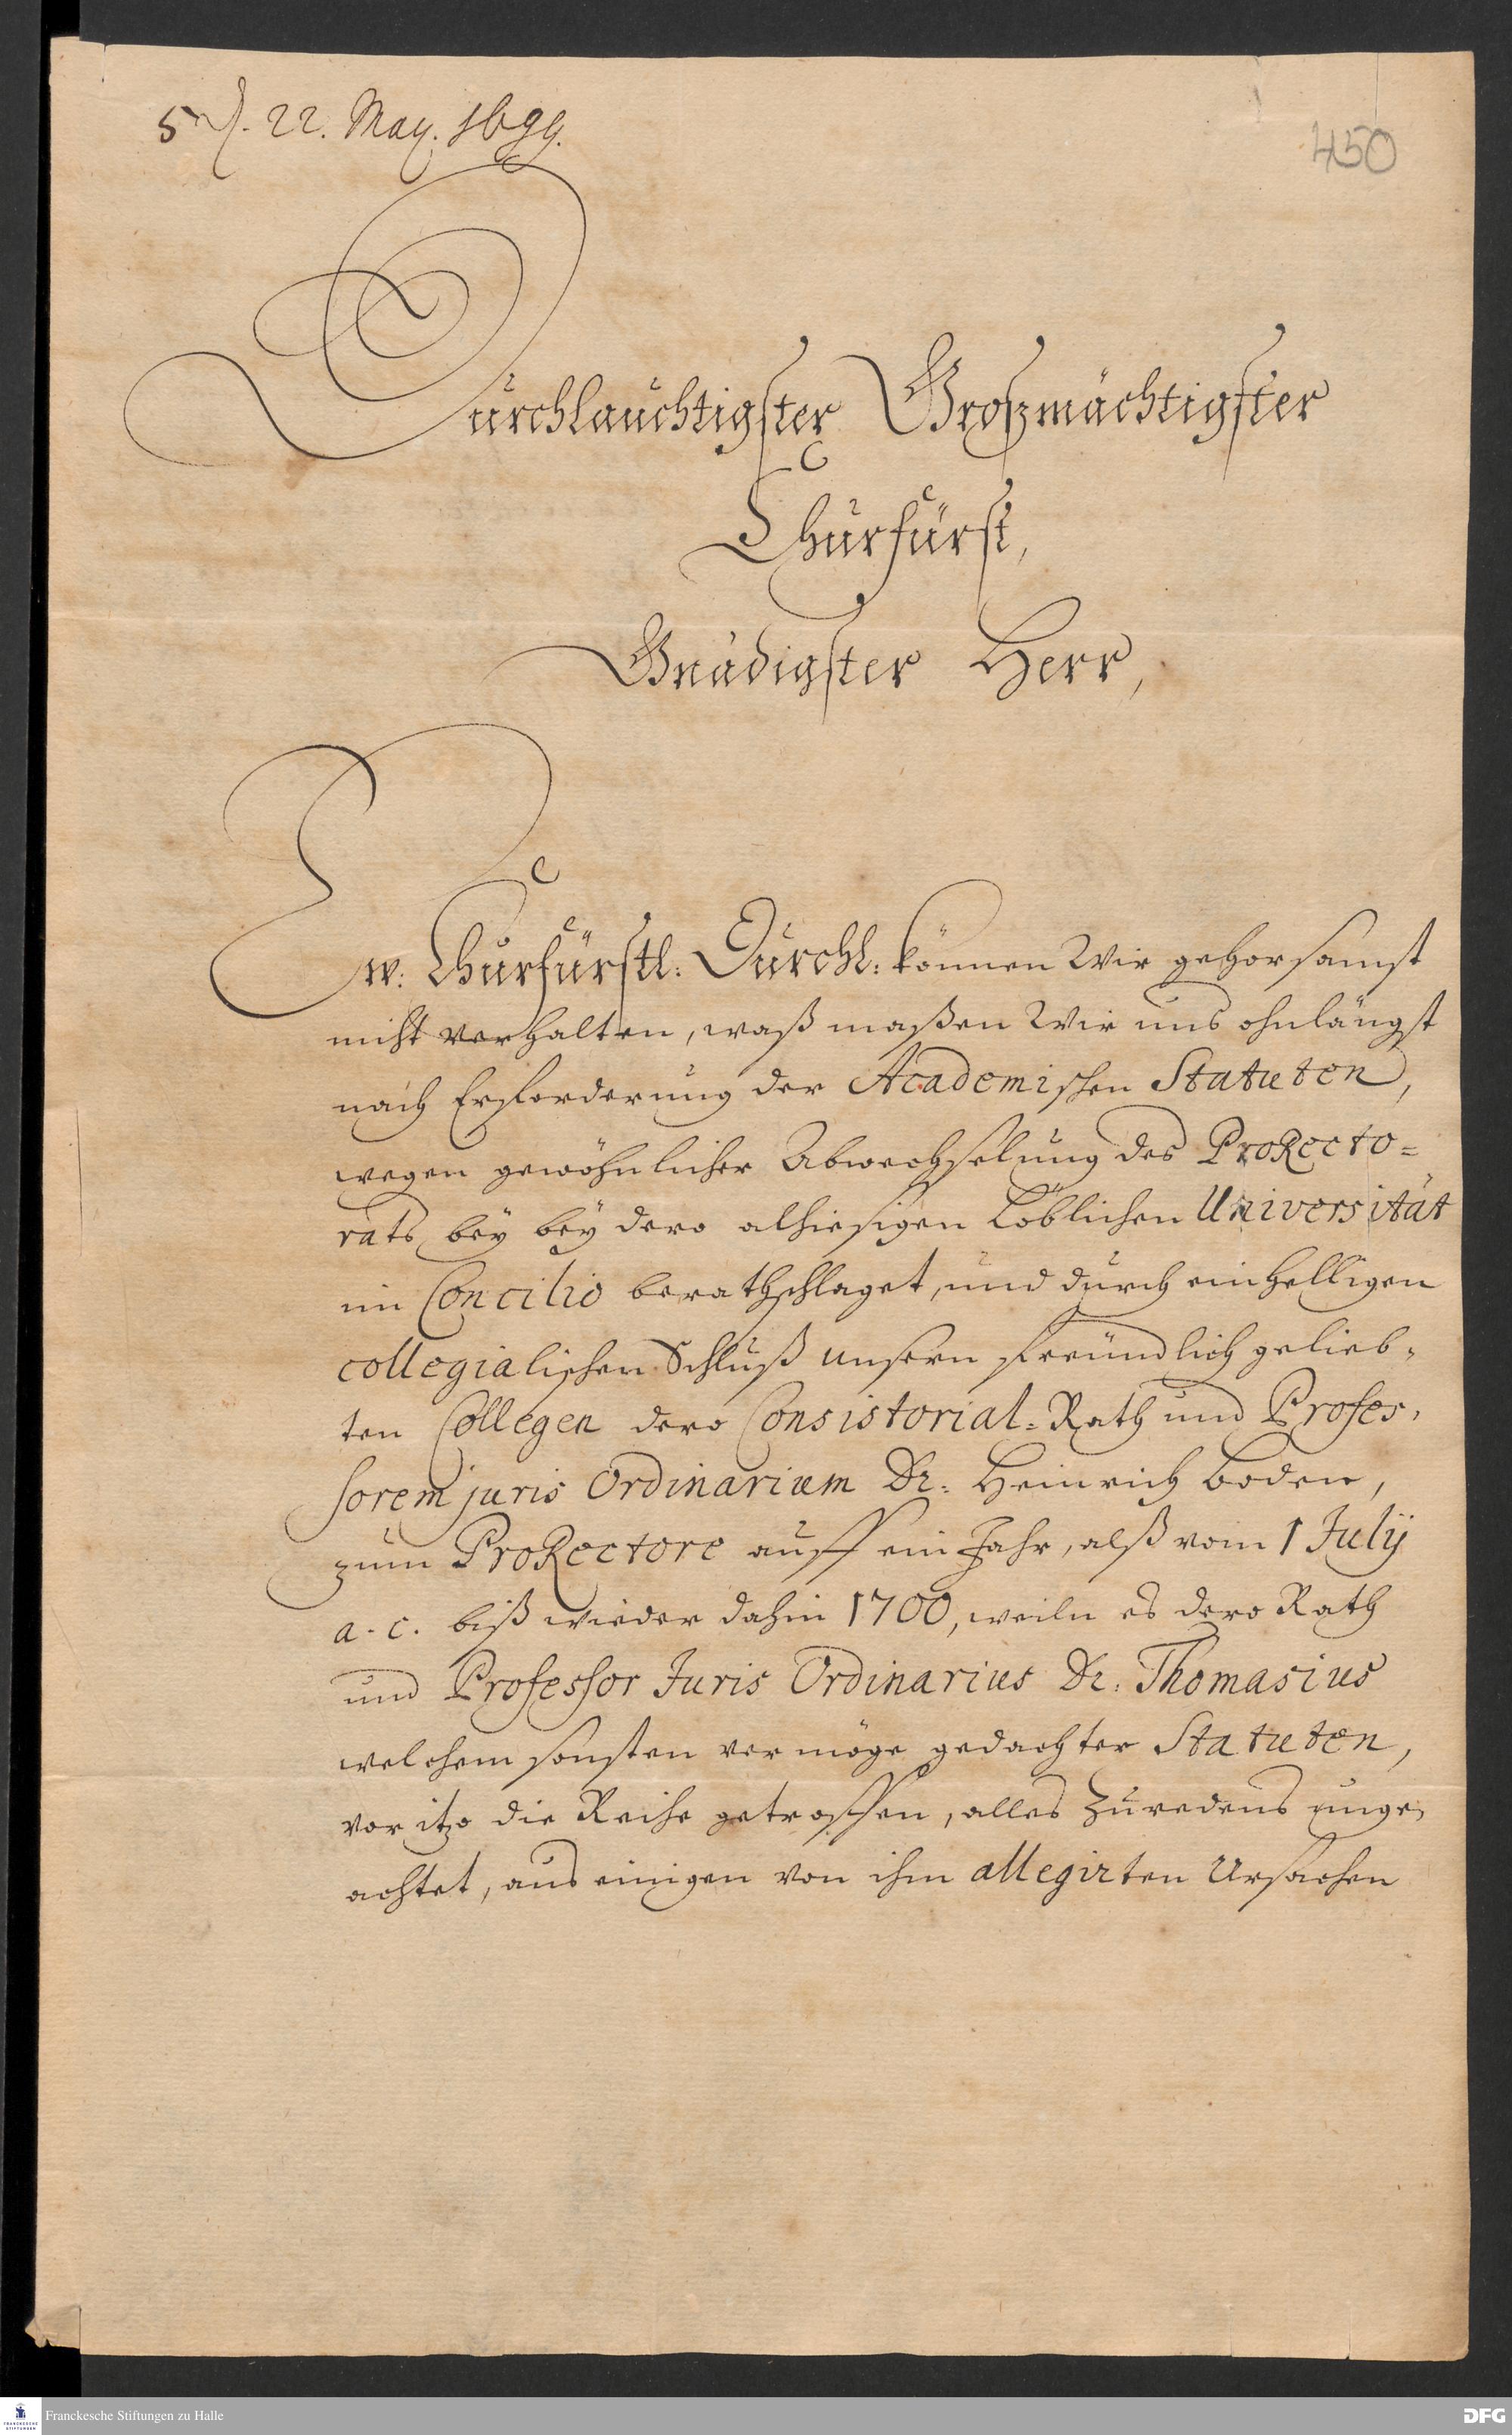 22. May. 1699.
450
Durchlauchtigster Großmächtigster
Churfürst,
Gnädigster Herr,
Ew: Churfürstl: Durchl: können Wir gehorsamst
nicht verhalten, waß maßen Wir uns ohnlängst
nach Erforderung der Academischen Statuten,
wegen gewöhnlicher Abwechselung des ProRecto=
rats bey bey dero alhiesigen Löblichen Universität
im Concilio berathschlaget, und durch einhelligen
collegialischen Schluß unsern freündlich gelieb=
ten Collegen dero Consistorial=Rath und Profes=
sorem juris Ordinarium Dr: Heinrich Boden,
zum ProRectore auff ein Jahr, alß vom 1 July
a. c. biß wieder dahin 1700, weiln es dero Rath
und Professor Juris Ordinarius Dr: Thomasius
welchem sonsten vermöge gedachter Statuten,
vor itzo die Reihe getroffen, alles Zuredens unge=
achtet, aus einigen von ihm allegirten Ursachen
Franckesche Stiftungen zu Halle
DFG